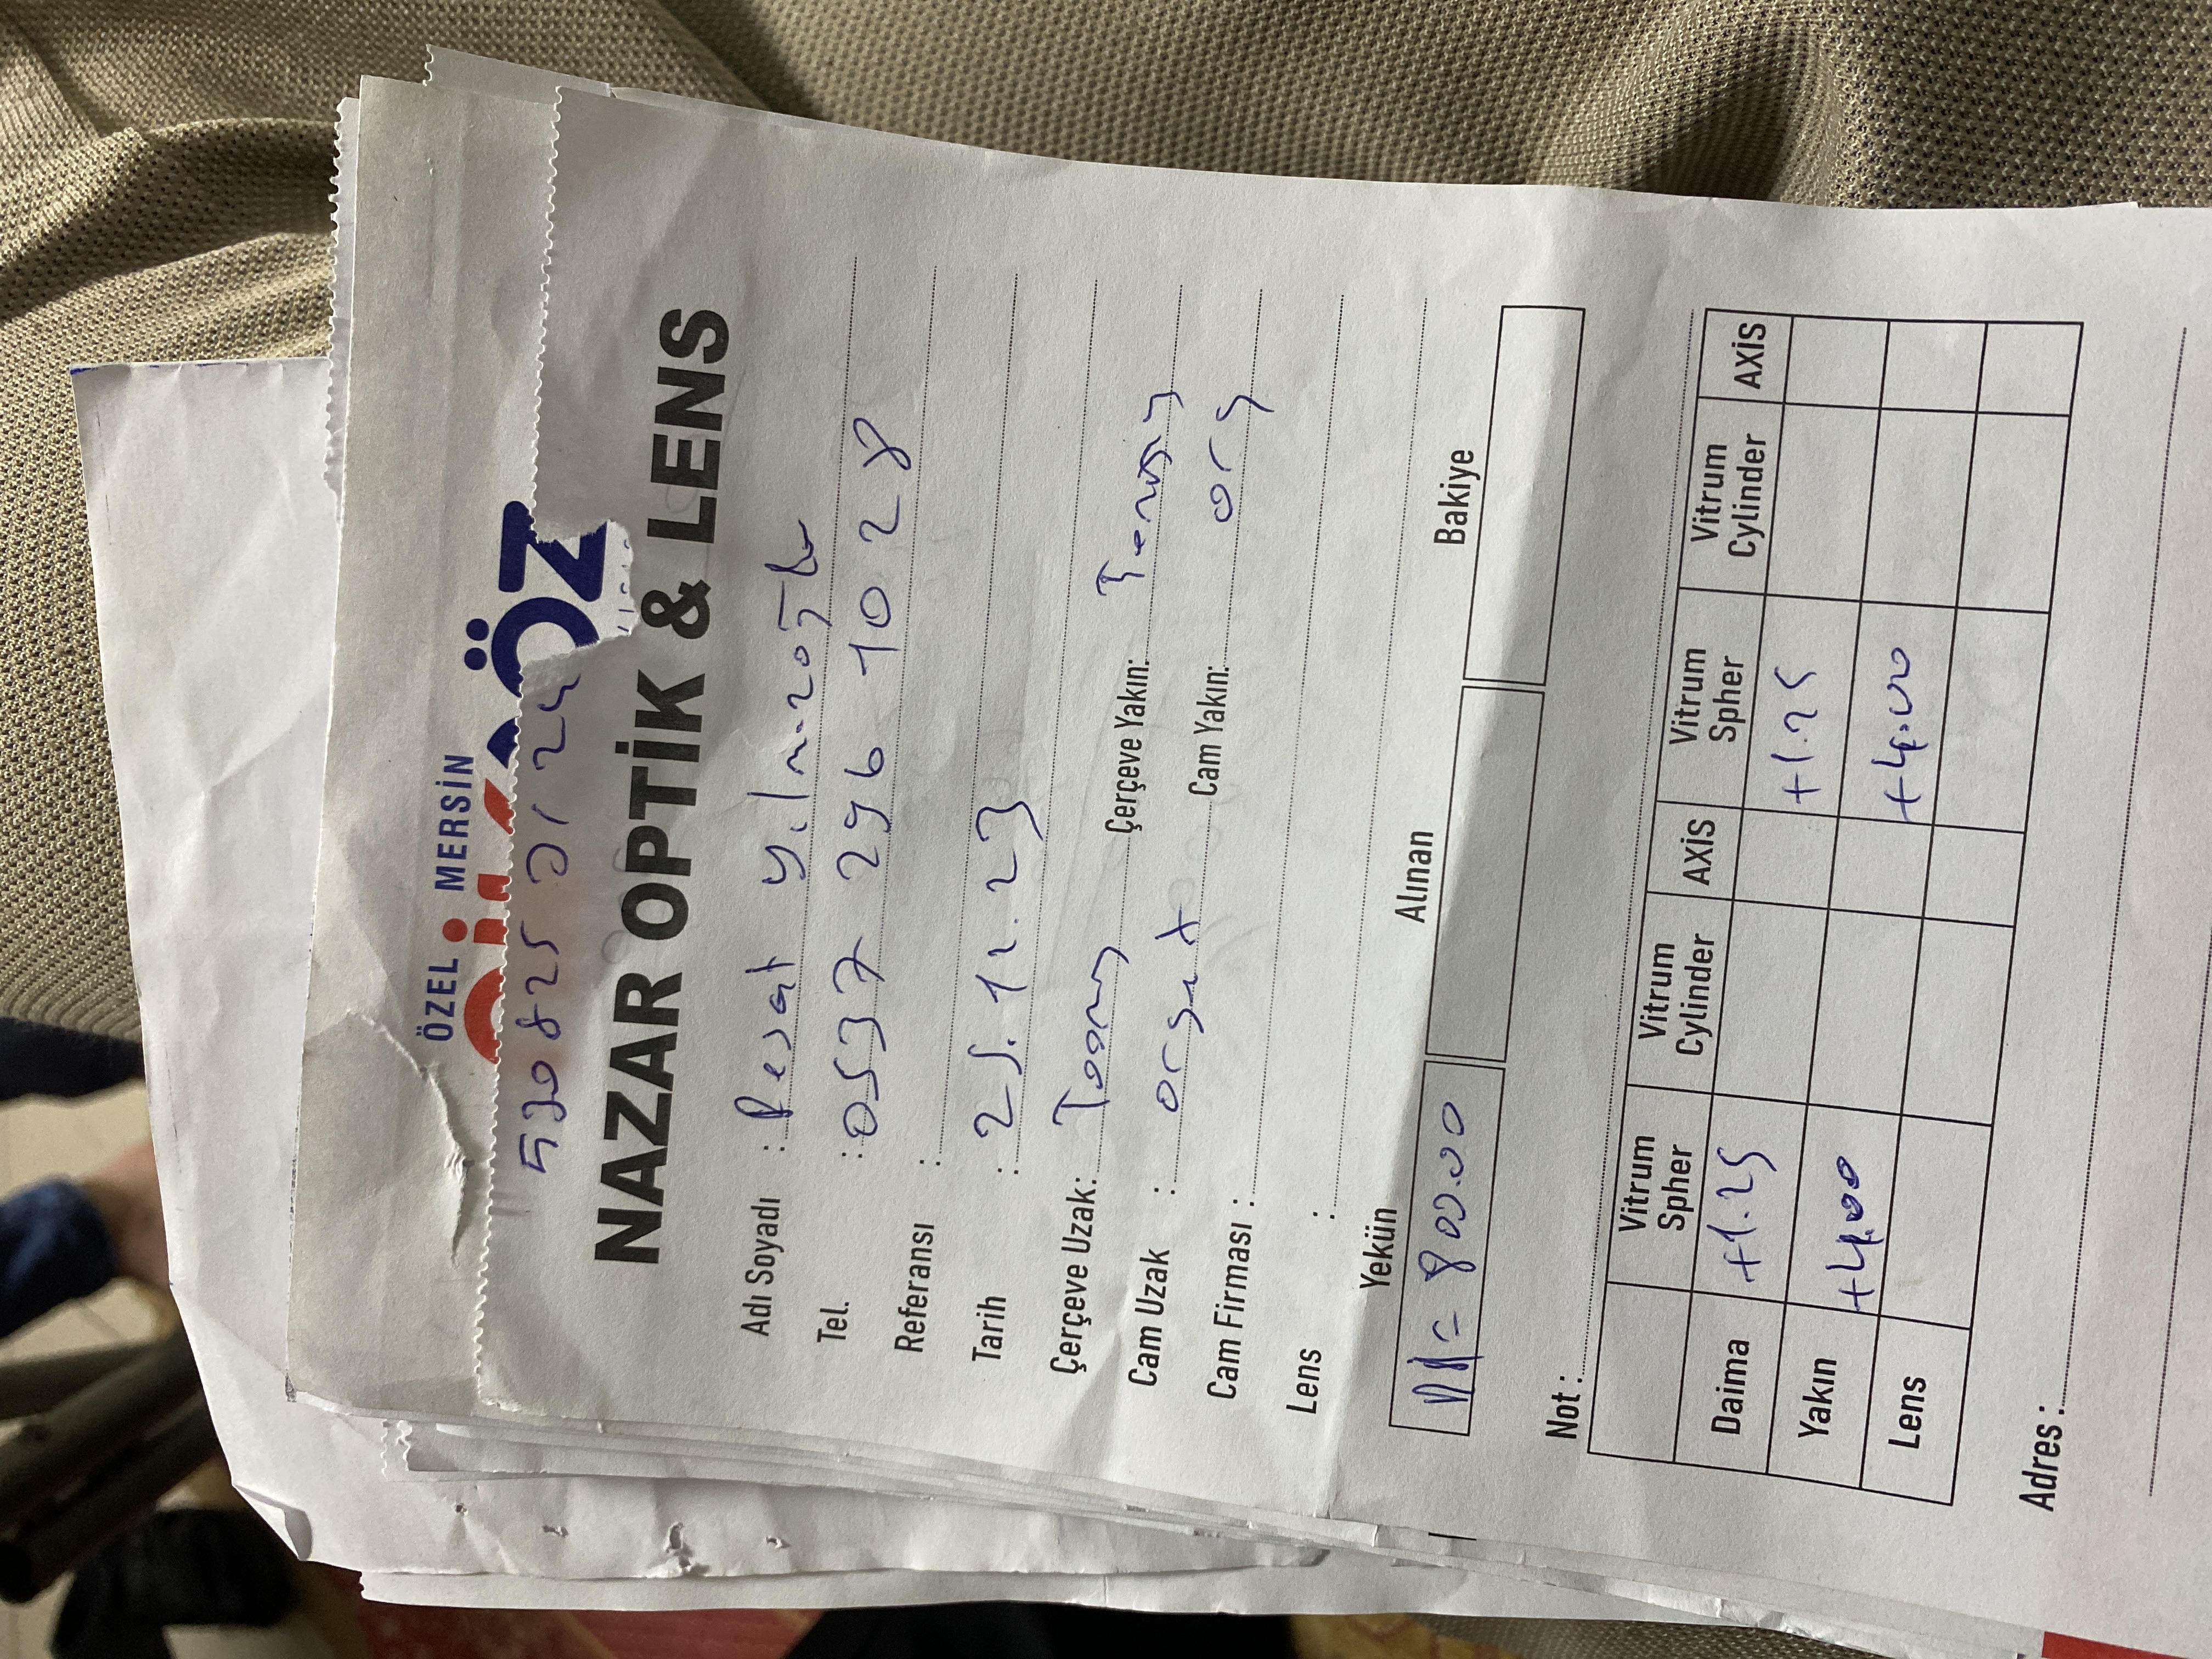 ÖZEL MERSİN
ÖZ
530 825 01 24
NAZAR OPTİK & LENS
Adı Soyadı : Reşat Yılmazoğlu
Tel. : 0537 296 10 28
Referansı :
Tarih : 25.12.23
Çerçeve Uzak: Çerçeve Yakın:
Cam Uzak : orgnt Cam Yakın: org
Cam Firması :
Lens :
Yekün Alınan Bakiye
= 800.00
Not :
Vitrum Spher Vitrum Cylinder AXİS Vitrum Spher Vitrum Cylinder AXİS
Daima +1.25 +1.25
Yakın +4.00 +4.00
Lens
Adres :